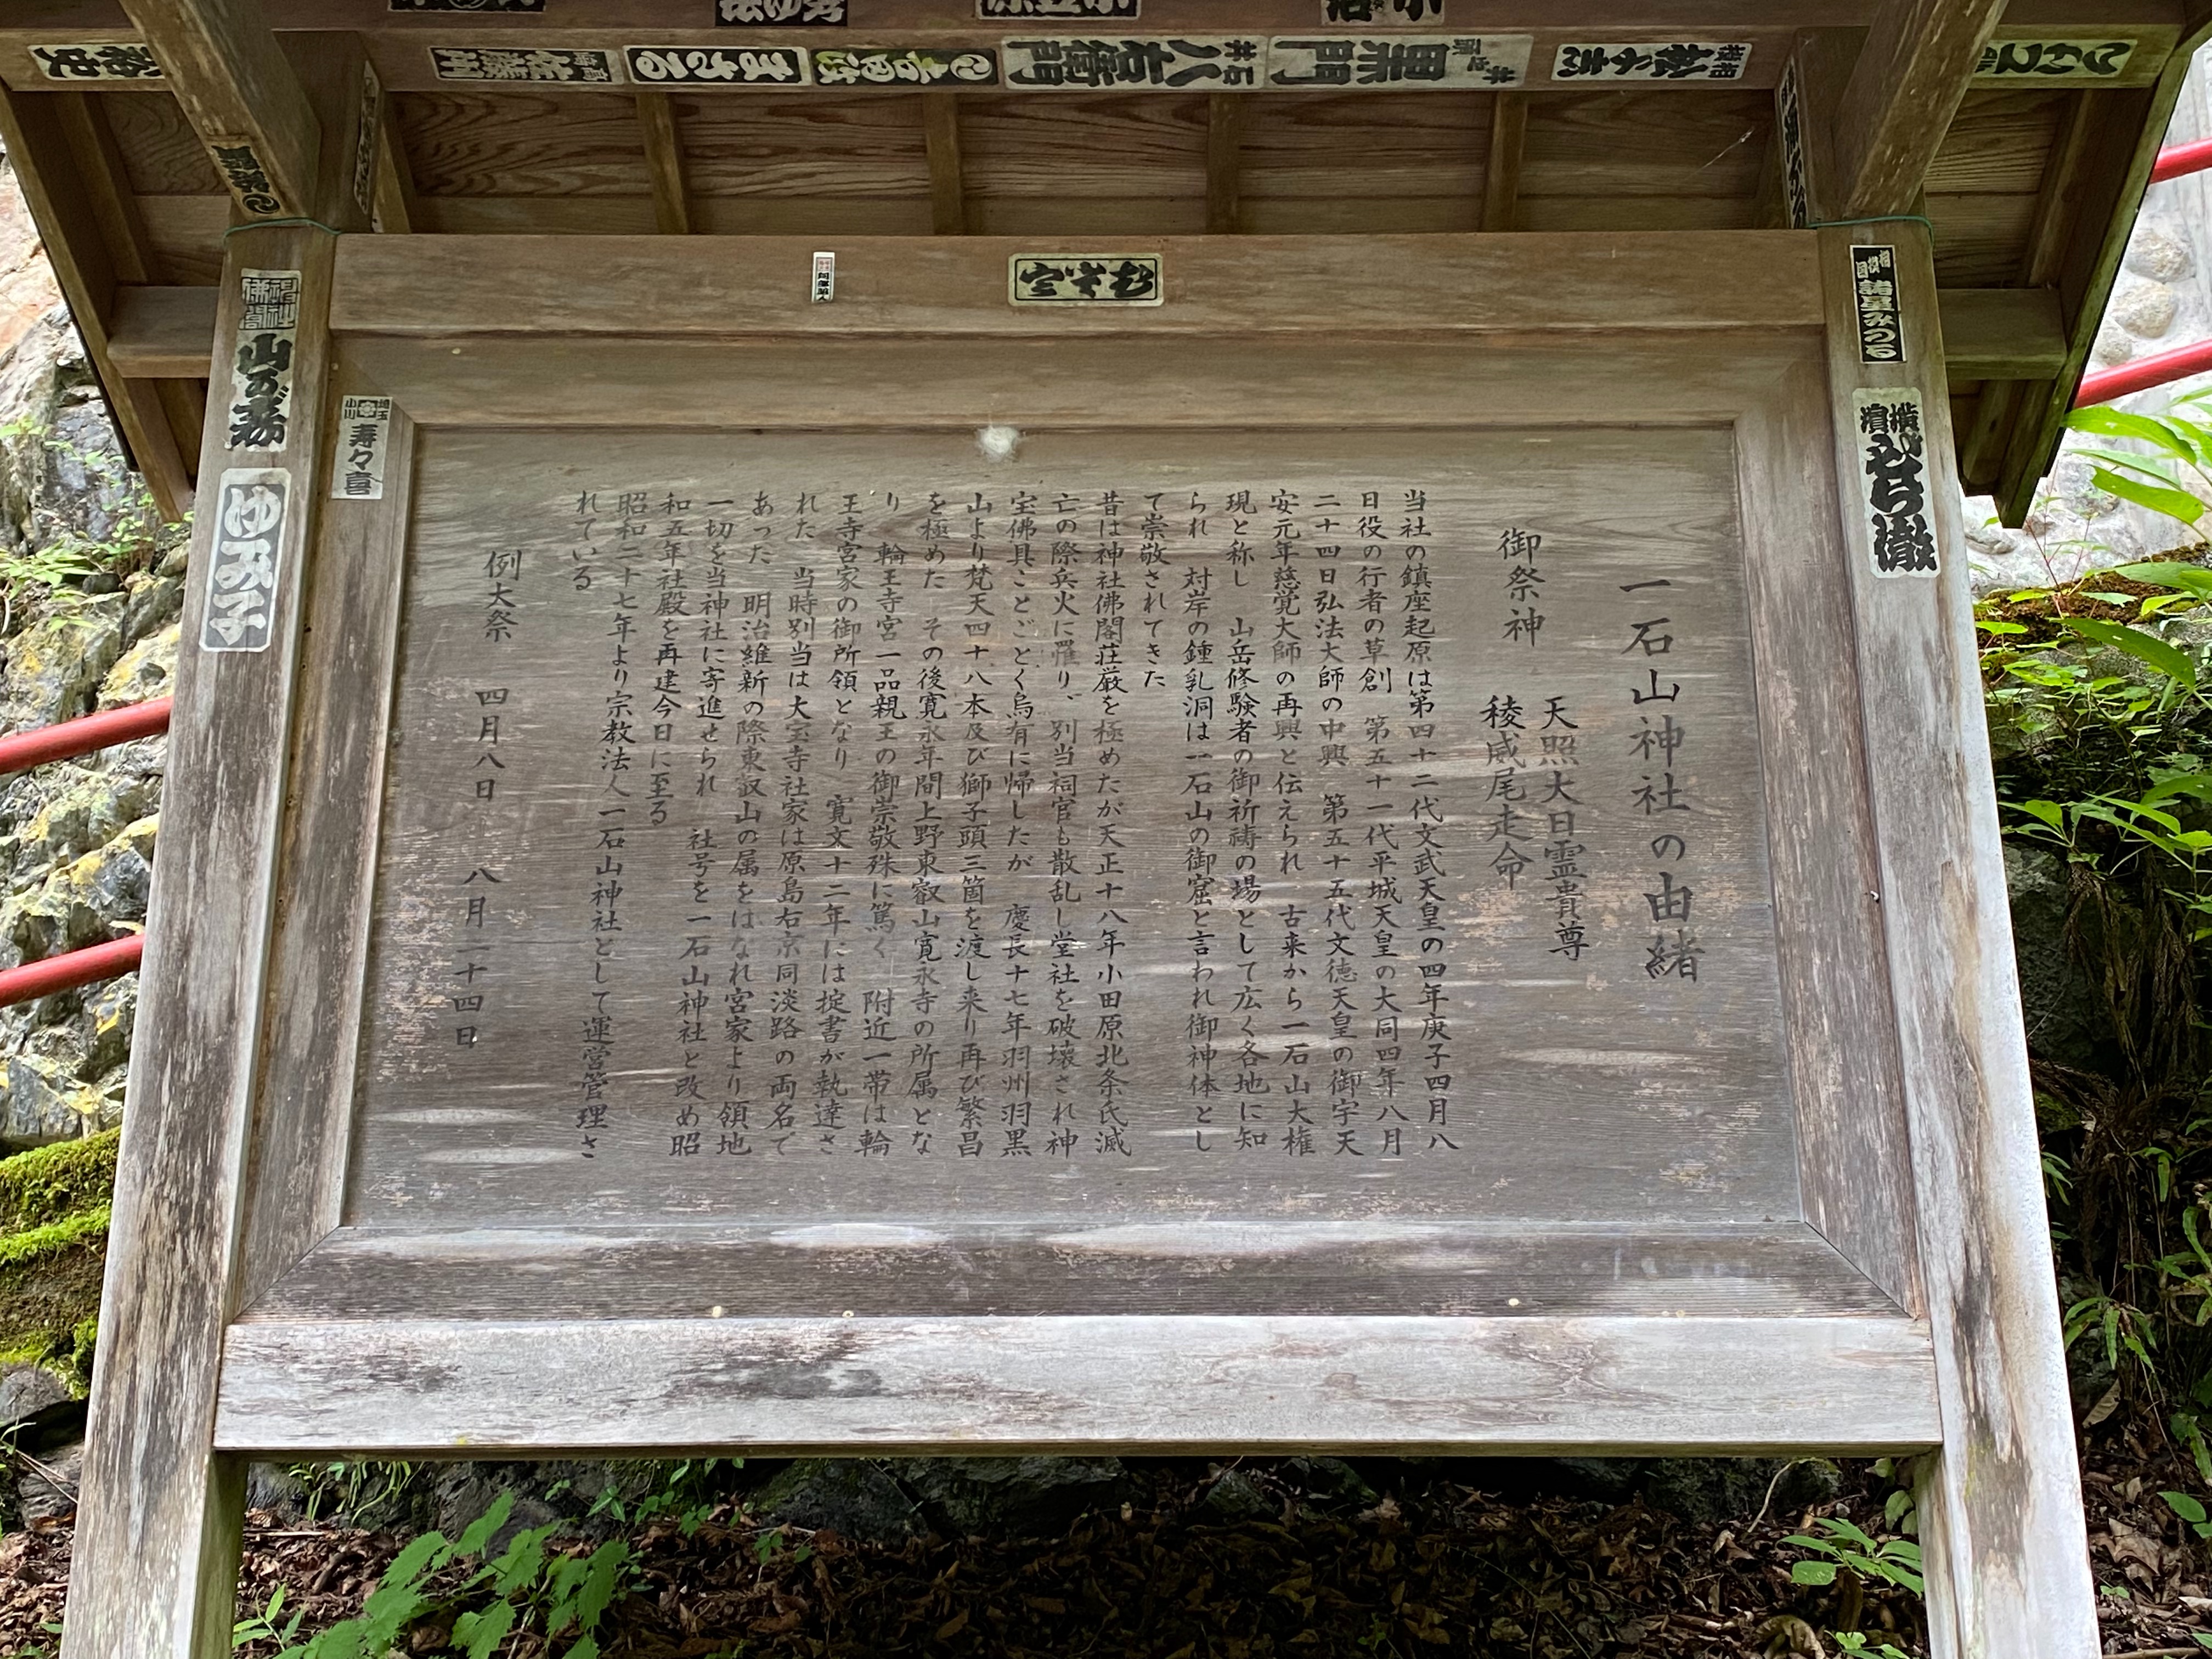 一石山神社の由緒
御祭神
天照大日霊貴尊
稜威尾走命
当社の鎮座起原は第四十二代文武天皇の四年庚子四月八
日役の行者の草創 第五十一代平城天皇の大同四年八月
二十四日弘法大師の中興 第五十五代文徳天皇の御宇天
安元年慈覚大師の再興と伝えられ 古来から一石山大権
現と称し 山岳修験者の御祈祷の場として広く各地に知
られ 対岸の鍾乳洞は一石山の御窟と言われ御神体とし
て崇敬されてきた
昔は神社佛閣荘厳を極めたが天正十八年小田原北条氏滅
亡の際兵火に罹り、別当祠官も散乱し堂社を破壊され神
宝佛具ことごとく烏有に帰したが 慶長十七年羽州羽黒
山より梵天四十八本及び獅子頭三箇を渡し来り再び繁昌
を極めた その後寛永年間上野東叡山寛永寺の所属とな
り 輪王寺宮一品親王の御崇敬殊に篤く 附近一帯は輪
王寺宮家の御所領となり 寛文十二年には掟書が執達さ
れた 当時別当は大宝寺社家は原島右京同淡路の両名で
あった 明治維新の際東叡山の属をはなれ宮家より領地
一切を当神社に寄進せられ 社号を一石山神社と改め昭
和五年社殿を再建今日に至る
昭和二十七年より宗教法人一石山神社として運営管理さ
れている
例大祭 四月八日 八月二十四日
むそう
ゆみ子
寿々喜
埼玉
小川
横濱
八右衛門
黒門
まさる
佐藤